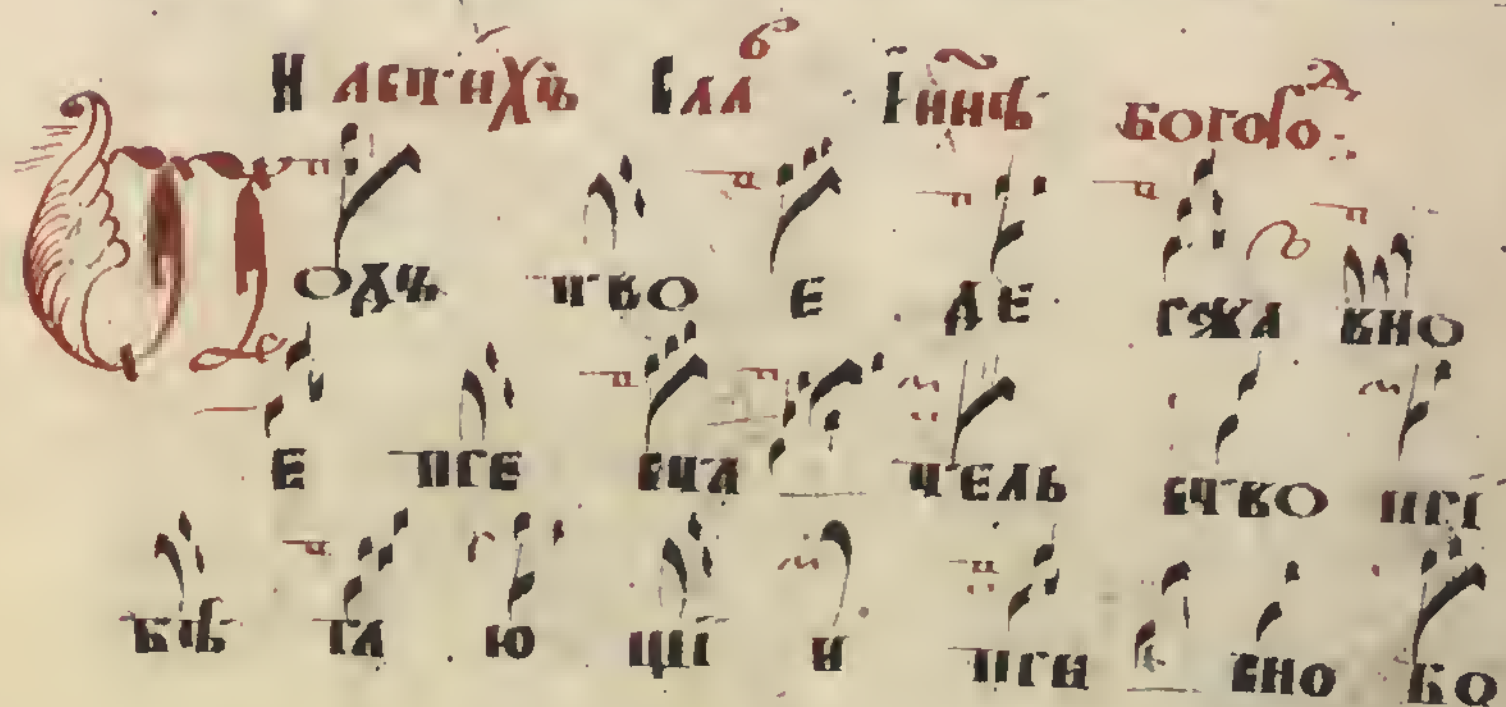 На стихъ Слав І ннѣ богород
Подъ тво е де ржа вно
е пре ста тель ство прі
бѣ га ю щі и при сно бо